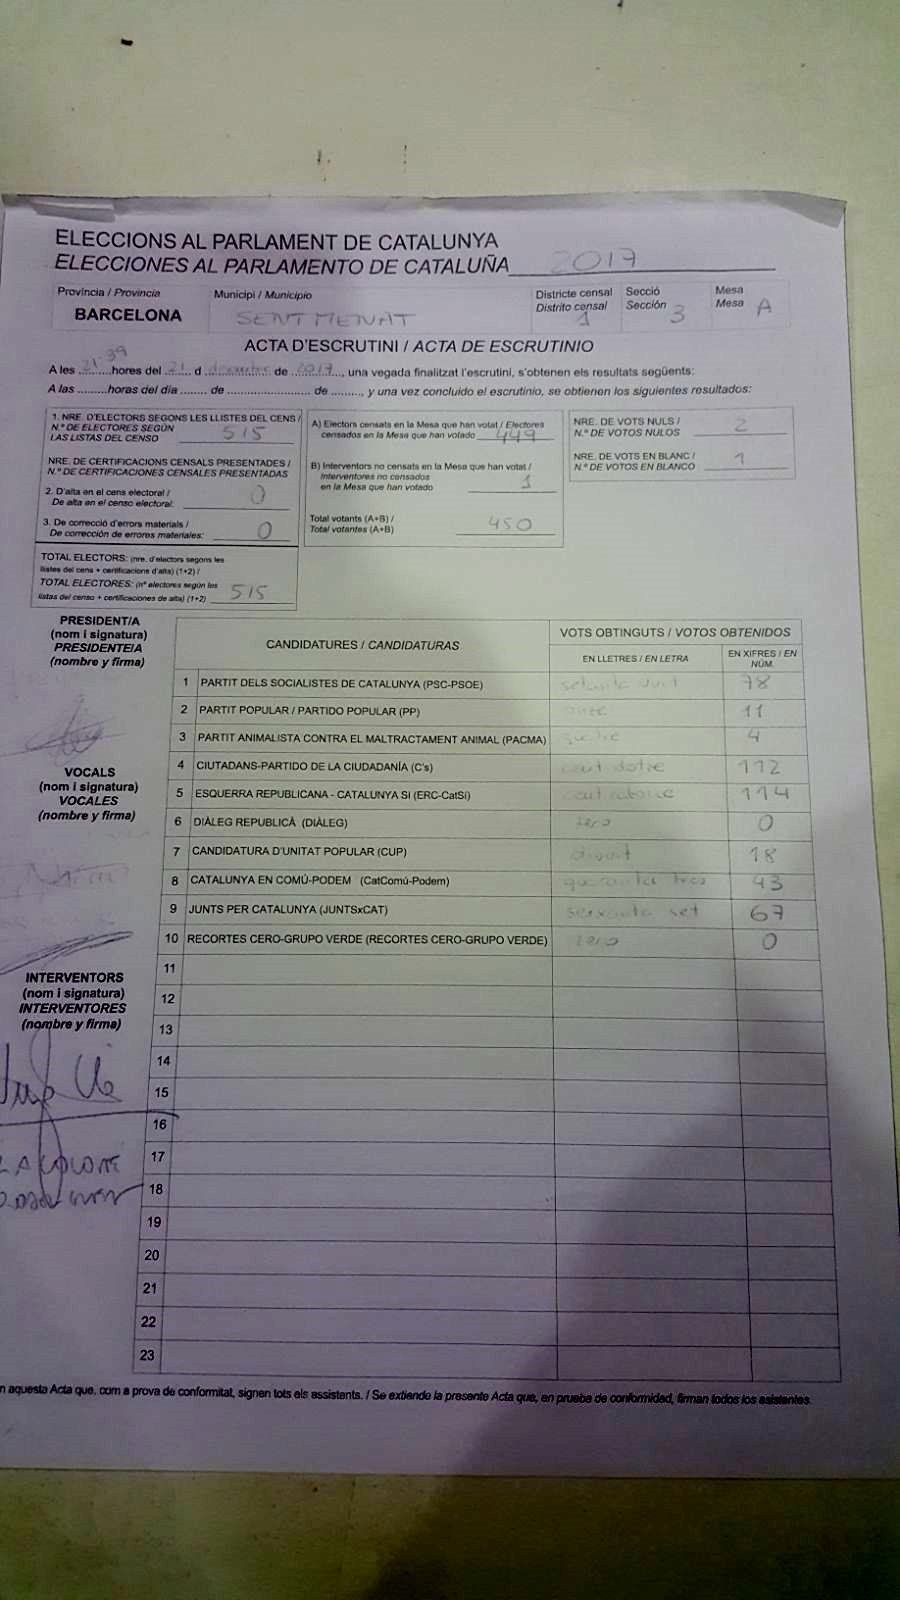 ELECCIONS AL PARLAMENT DE CATALUNYA
ELECCIONES AL PARLAMENTO DE CATALUÑA 2017
Província / Provincia
BARCELONA
Municipi / Municipio
SENTMENAT
Districte censal
Distrito censal
1
Secció
Sección
3
Mesa
Mesa
A
ACTA D'ESCRUTINI / ACTA DE ESCRUTINIO
A les 21:39 hores del 21 d desembre de 2017, una vegada finalitzat l'escrutini, s'obtenen els resultats següents:
A las .........horas del día ....... de ........................ de ........., y una vez concluido el escrutinio, se obtienen los siguientes resultados:
1. NRE. D'ELECTORS SEGONS LES LLISTES DEL CENS /
N.º DE ELECTORES SEGÚN
LAS LISTAS DEL CENSO 515
NRE. DE CERTIFICACIONS CENSALS PRESENTADES /
N.º DE CERTIFICACIONES CENSALES PRESENTADAS
2. D'alta en el cens electoral /
De alta en el censo electoral: 0
3. De correcció d'errors materials /
De corrección de errores materiales: 0
TOTAL ELECTORS: (nre. d'electors segons les
llistes del cens + certificacions d'alta) (1+2) /
TOTAL ELECTORES: (nº electores según las
listas del censo + certificaciones de alta) (1+2) 515
A) Electors censats en la Mesa que han votat / Electores
censados en la Mesa que han votado 449
B) Interventors no censats en la Mesa que han votat /
Interventores no censados
en la Mesa que han votado 1
Total votants (A+B) /
Total votantes (A+B) 450
NRE. DE VOTS NULS /
N.º DE VOTOS NULOS 2
NRE. DE VOTS EN BLANC /
N.º DE VOTOS EN BLANCO 1
PRESIDENT/A
(nom i signatura)
PRESIDENTE/A
(nombre y firma)
VOCALS
(nom i signatura)
VOCALES
(nombre y firma)
INTERVENTORS
(nom i signatura)
INTERVENTORES
(nombre y firma)
CANDIDATURES / CANDIDATURAS
VOTS OBTINGUTS / VOTOS OBTENIDOS
EN LLETRES / EN LETRA
EN XIFRES / EN NÚM.
1 PARTIT DELS SOCIALISTES DE CATALUNYA (PSC-PSOE) setanta vuit 78
2 PARTIT POPULAR / PARTIDO POPULAR (PP) onze 11
3 PARTIT ANIMALISTA CONTRA EL MALTRACTAMENT ANIMAL (PACMA) quatre 4
4 CIUTADANS-PARTIDO DE LA CIUDADANÍA (C's) cent dotze 112
5 ESQUERRA REPUBLICANA - CATALUNYA SI (ERC-CatSí) cent catorze 114
6 DIÀLEG REPUBLICÀ (DIÀLEG) zero 0
7 CANDIDATURA D'UNITAT POPULAR (CUP) divuit 18
8 CATALUNYA EN COMÚ-PODEM (CatComú-Podem) quaranta tres 43
9 JUNTS PER CATALUNYA (JUNTSxCAT) seixanta set 67
10 RECORTES CERO-GRUPO VERDE (RECORTES CERO-GRUPO VERDE) zero 0
11
12
13
14
15
16
17
18
19
20
21
22
23
n aquesta Acta que, com a prova de conformitat, signen tots els assistents. / Se extiende la presente Acta que, en prueba de conformidad, firman todos los asistentes.